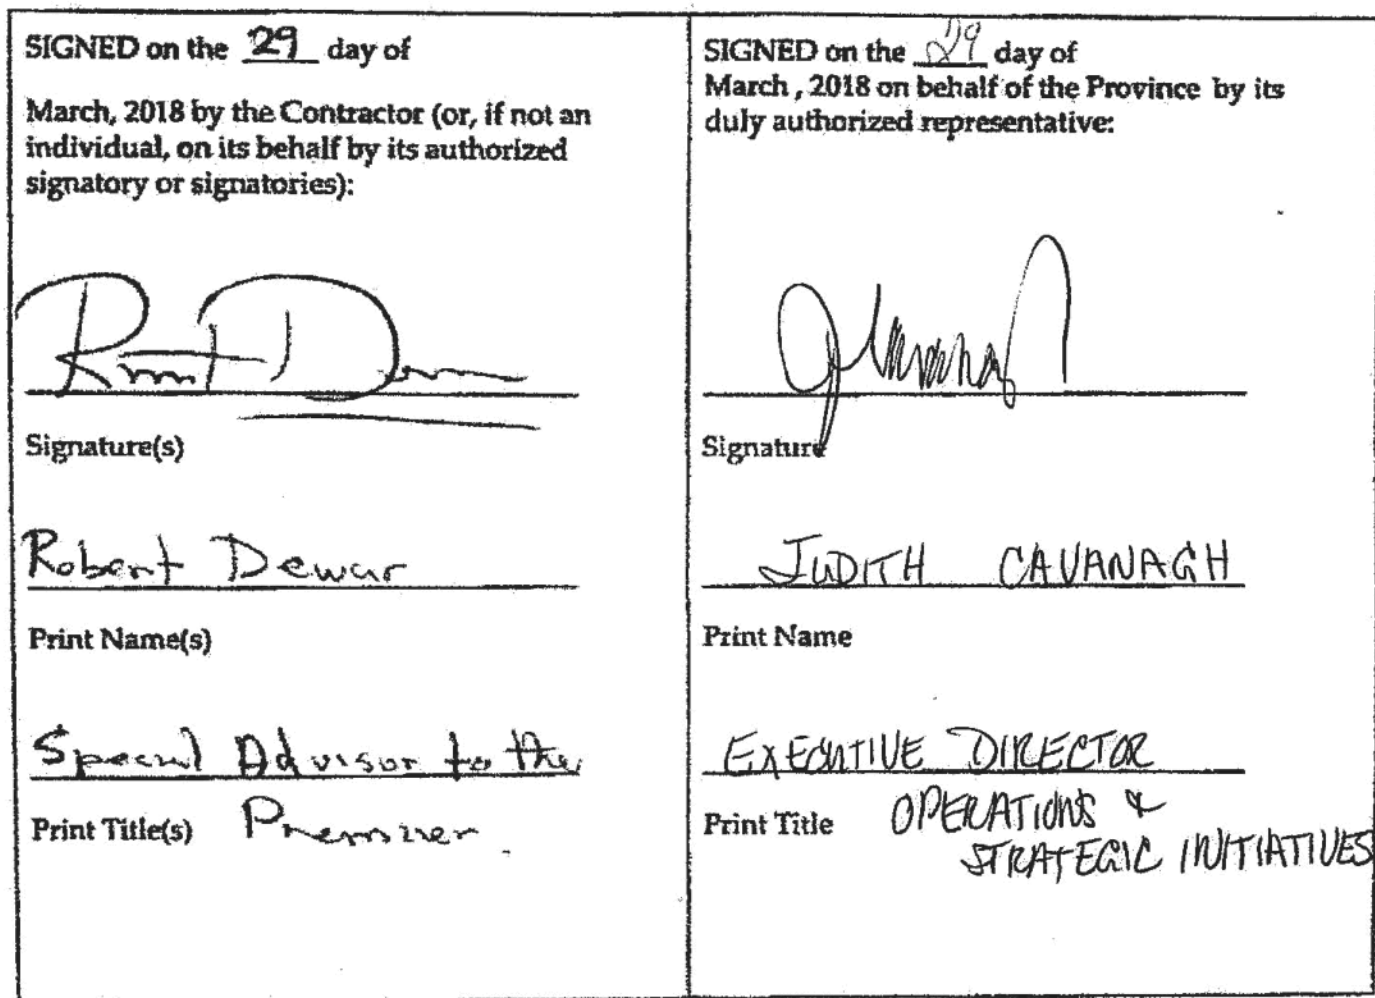 SIGNED on the 29 day of
March, 2018 by the Contractor (or, if not an
individual, on its behalf by its authorized
signatory or signatories):
Signature(s)
Robert Dewar
Print Name(s)
Special Advisor to the
Print Title(s) Premier
SIGNED on the 29 day of
March , 2018 on behalf of the Province by its
duly authorized representative:
Signature
JUDITH CAVANAGH
Print Name
EXECUTIVE DIRECTOR
Print Title OPERATIONS &
STRATEGIC INITIATIVES